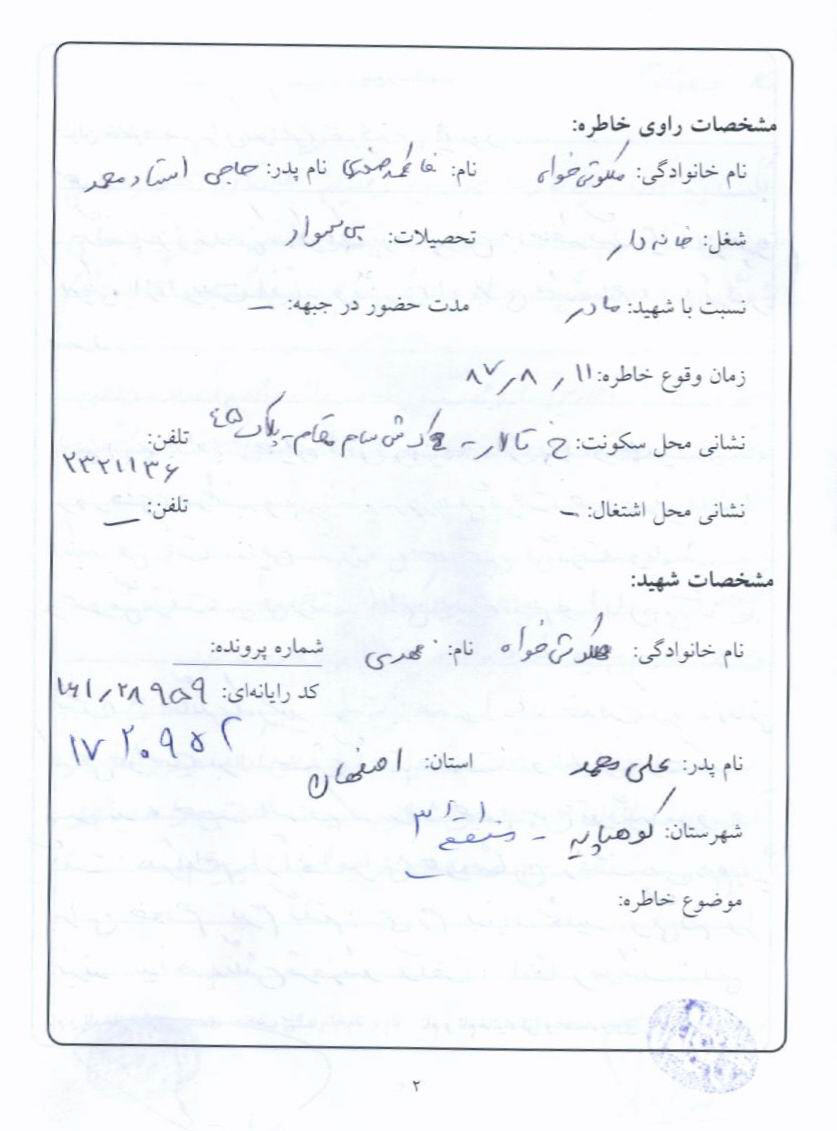 مشخصات راوی خاطره:
نام خانوادگی: ملکوتی‌خواه نام: فاطمه صغری نام پدر: حاجی استاد محمد
شغل: خانه دار تحصیلات: بی سواد
نسبت با شهید: مادر مدت حضور در جبهه: –
زمان وقوع خاطره: ۱۱ / ۸ / ۸۷
نشانی محل سکونت: خ تالار - پلاک ۴۵ تلفن:
۲۳۲۱۱۳۶
نشانی محل اشتغال: – تلفن: –
مشخصات شهید:
نام خانوادگی: ملکوتی خواه نام: مهدی شماره پرونده:
کد رایانه‌ای: ۱۶۱/۲۸۹۵۹
۱۷۲۰۹۵۲
نام پدر: علی محمد استان: اصفهان
شهرستان: کوهپایه - منطقه ۳
موضوع خاطره:
۲